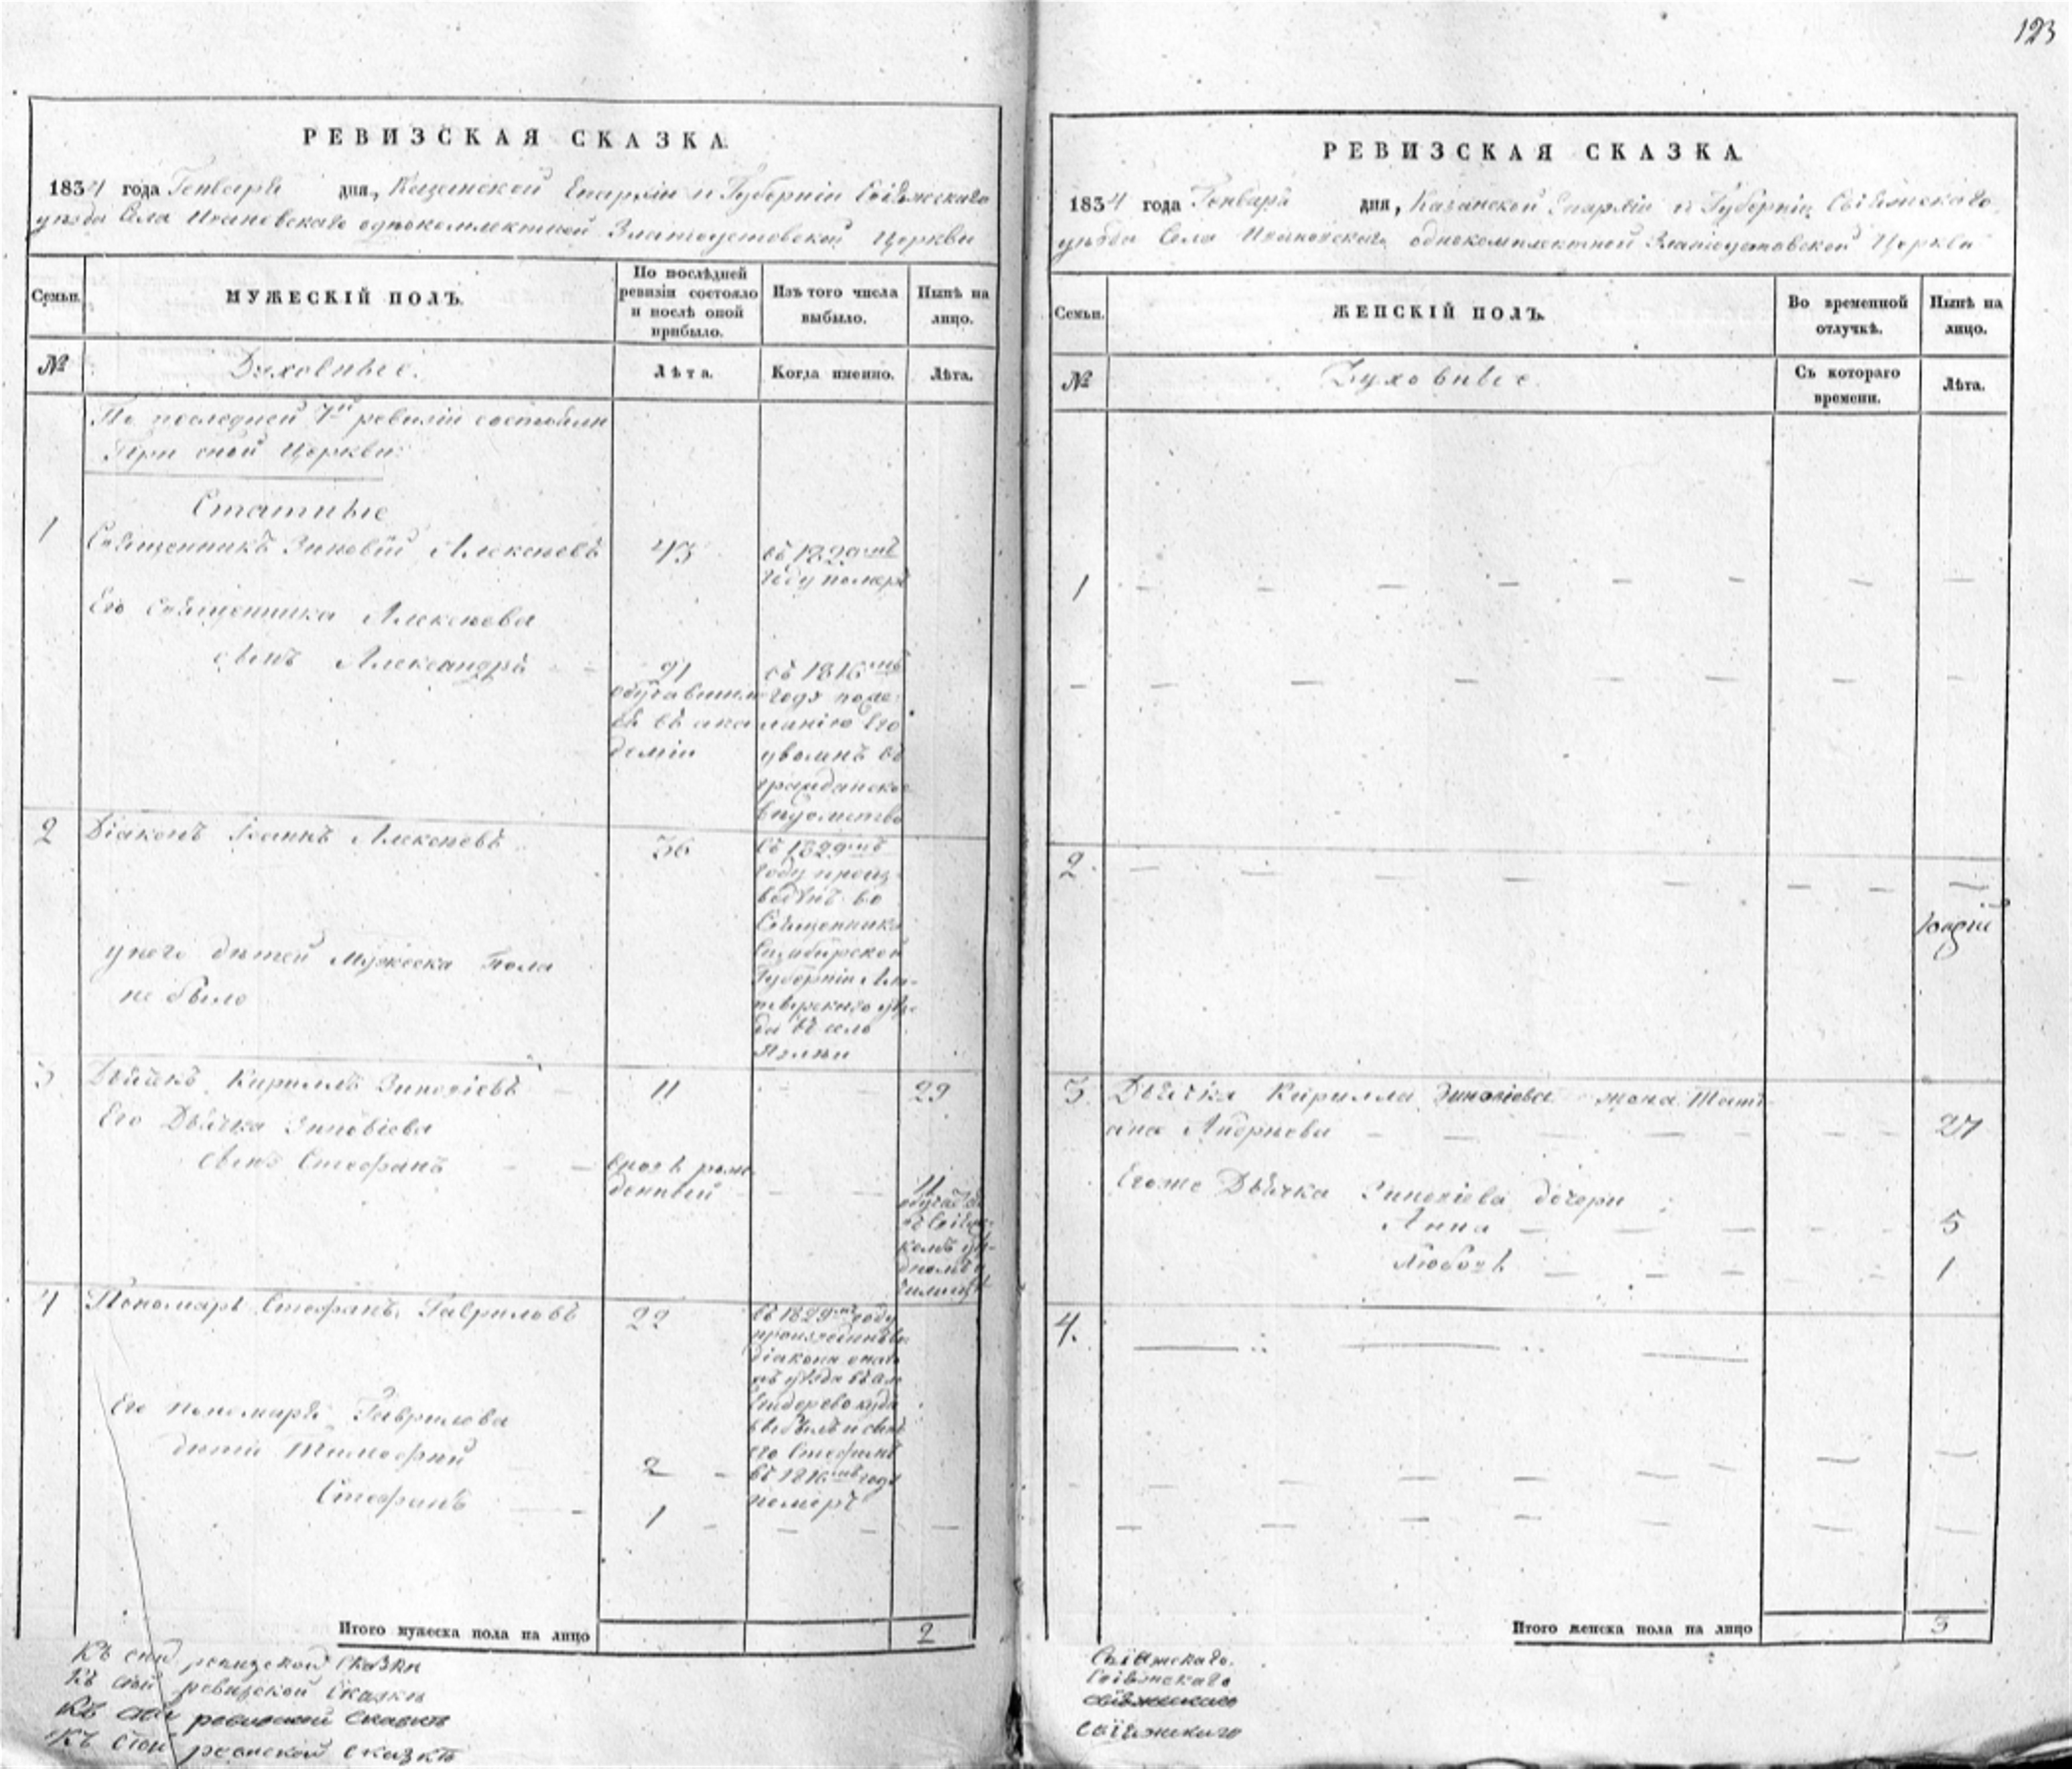 123
РЕВИЗСКАЯ СКАЗКА.
1834 года Генваря дня, Казанской Епархіи и Губерніи Свіяжскаго
уѣзда Села Ивановскаго однокомплектной Златоустовской Церкви
Семьи.
МУЖЕСКІЙ ПОЛЪ.
По послѣдней
ревизіи состояло
и послѣ оной
прибыло.
Изъ того числа
выбыло.
Нынѣ на
лицо.
№
Духовные.
Лѣта.
Когда именно.
Лѣта.
По последней 7й ревизіи состояли
При оной Церкви:
Статные
1
Священникъ Зиновій Алексѣевъ
43
въ 1829мъ
году помере
Его Священника Алексѣева
сынъ Александръ
21
обучавшим
въ ака
деміи
въ 1816мъ
годе поже
ланію Его
уволенъ въ
гражданское
вѣдомство
2
Діаконъ Іоаннъ Алексѣевъ
36
въ 1829мъ
году произ
веденъ во
Священника
Симбирской
Губерніи
въ село
у него дѣтей Мужеска Пола
не было
3
Дьячекъ Кириллъ Зиновіевъ
11
29
Его Дьячка Зиновіева
сынъ Стефанъ
рож
денный
11
4
Пономарь Стефанъ Гавриловъ
22
въ 1829мъ году
произведенъ въ
діакона
выбылъ и сынъ
его
въ 1816мъ годе
померъ
Его пономаря Гаврилова
дѣти Тимофей
2
Стефанъ
1
Итого мужеска пола на лицо
2
Къ сей ревизской Сказки
Къ сей ревизской Сказкѣ
Къ сей ревизской Сказкѣ
Къ сей ревизской сказкѣ
РЕВИЗСКАЯ СКАЗКА.
1834 года Генваря дня, Казанской Епархіи и Губерніи Свіяжскаго
уѣзда Села Ивановскаго однокомплектной Златоустовской Церкви
Семьи.
ЖЕНСКІЙ ПОЛЪ.
Во временной
отлучкѣ.
Нынѣ на
лицо.
№
Духовные.
Съ котораго
времени.
Лѣта.
1
2.
3.
Дьячка Кирилла Зиновіева жена Тать
яна Андреева
27
Егоже Дьячка Зиновіева дочери
Анна
5
Любовь
1
4.
Итого женска пола на лицо
3
Свіяжскаго.
Свіяжскаго
Свіяжскаго
Свіяжскаго